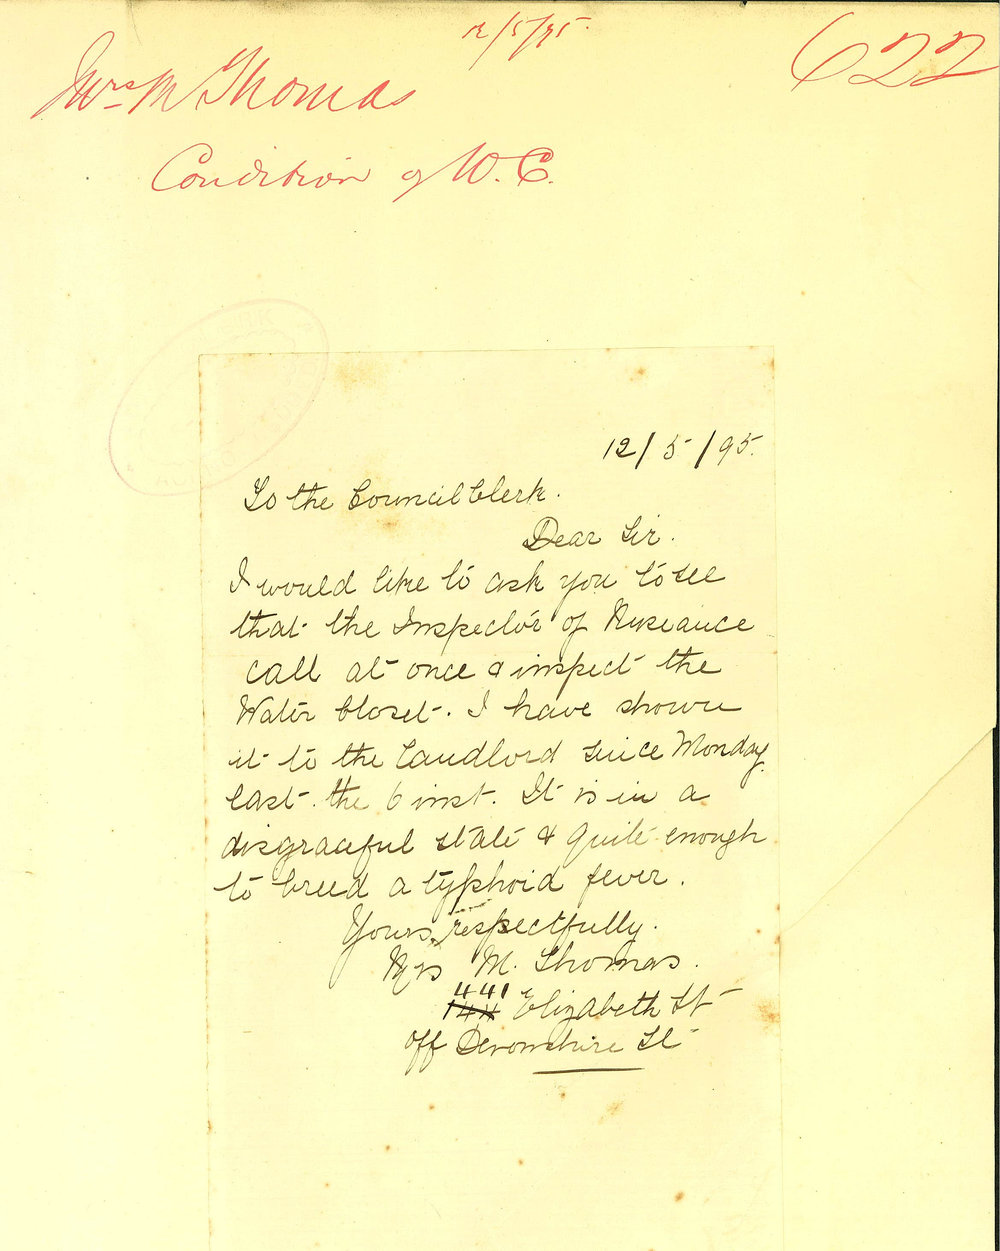 12/5/95
622
Mrs M Thomas
Condition of W.C.
12/5/95.
To the Council Clerk.
Dear Sir.
I would like to ask you to see
that the Inspector of Nusiance
call at once & inspect the
Water Closet. I have shown
it to the Landlord since Monday
last. the 6 inst. It is in a
disgraceful state & quite enough
to breed a typhoid fever.
Yours respectfully.
Mrs M. Thomas.
441
144 Elizabeth St
off Devonshire St